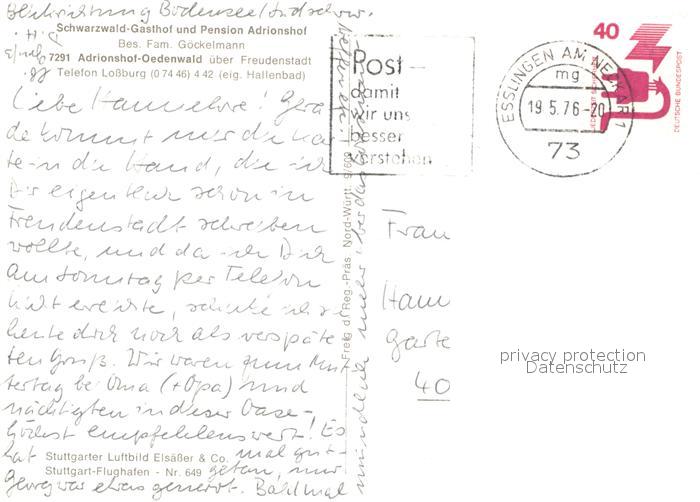 Blickrichtung Bodensee/Südschw.
Schwarzwald-Gasthof und Pension Adrionshof
Bes. Fam. Göckelmann
7291 Adrionshof-Oedenwald über Freudenstadt
Telefon Loßburg (0 74 46) 4 42 (eig. Hallenbad)
Liebe Hannelore! Gera
de kommt mir die Kar-
te in die Hand, die ich
Dir eigentlich schon in
Freudenstadt schreiben
wollte, und da ich Dich
am Sonntag per Telefon
nicht erreichte, schicke ich sie
heute doch noch als verspäte-
ten Gruß. Wir waren zum Mut-
tertag bei Oma (+Opa) und
nächtigten in dieser Oase -
höchst empfehlenswert! Es
hat mal gut-
getan, nur
Georg war etwas genervt. Bald mal
Stuttgarter Luftbild Elsäßer & Co.
Stuttgart-Flughafen - Nr. 649
Freig d. Reg.-Präs Nord-Württ.
mündlich mehr!
Post -
damit
wir uns
besser
verstehen
ESSLINGEN AM NECKAR 1
mg
19.5.76-20
73
40
DEUTSCHE BUNDESPOST
Frau
Hann
Garte
40
privacy protection
Datenschutz